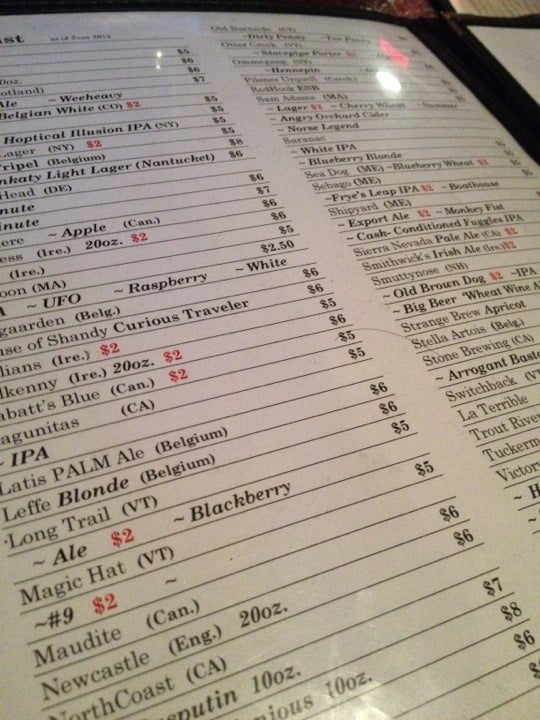 as of June 2012
$5
$6
oz. $7
otland)
Ale ~ Weeheavy
Belgian White (CO) $2 $5
$5
Hoptical Illusion IPA (NY) $5
Lager (NY) $2 $8
Tripel (Belgium) $6
nkaty Light Lager (Nantucket)
Head (DE) $6
nute $7
inute $6
ere ~ Apple (Can.) $6
ess (Ire.) 20oz. $2 $5
(Ire.) $2.50
oon (MA)
~ UFO ~ Raspberry ~ White
gaarden (Belg.) $6
use of Shandy Curious Traveler $6
llians (Ire.) $2 $5
lkenny (Ire.) 20oz. $2 $6
abatt's Blue (Can.) $2 $5
agunitas (CA) $5
~ IPA
Latis PALM Ale (Belgium) $6
Leffe Blonde (Belgium) $6
Long Trail (VT) $5
~ Ale $2 ~ Blackberry
Magic Hat (VT) $5
~#9 $2 ~
Maudite (Can.) $6
Newcastle (Eng.) 20oz. $6
NorthCoast (CA)
asputin 10oz. $7
10oz. $8
$6
~Dirty Penny ~Ten Penny
Otter Creek (VT)
~ Stovepipe Porter $2
Ommegang (NY)
~Hennepin
Pilsner Urquell (Czech.)
RedHook ESB
Sam Adams (MA)
~ Lager $2 ~ Cherry Wheat ~Summer
~ Angry Orchard Cider
~ Norse Legend
Saranac
~ White IPA
~ Blueberry Blonde
Sea Dog (ME) ~Blueberry Wheat $2
Sebago (ME)
~Frye's Leap IPA $2 ~ Boathouse
Shipyard (ME)
~ Export Ale $2 ~ Monkey Fist
~ Cash-Conditioned Fuggles IPA
Sierra Nevada Pale Ale (CA) $2
Smithwick's Irish Ale (Ire.) $2
Smuttynose (NH)
~ Old Brown Dog $2 ~IPA
~ Big Beer "Wheat Wine A
Strange Brew Apricot
Stella Artois (Belg.)
Stone Brewing (CA)
~ Arrogant Basta
Switchback (VT
La Terrible
Trout River
Tuckerm
Victory
~ H